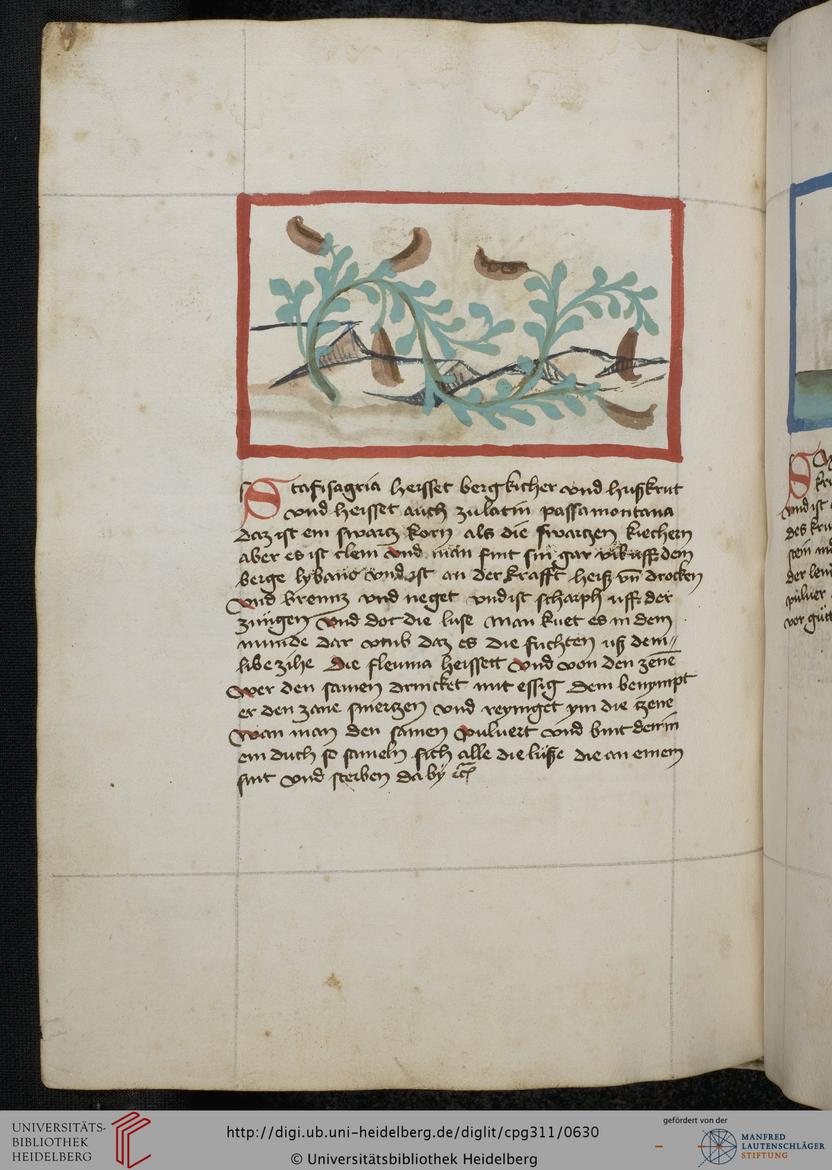 Stafisagria heisset bergkicher vnd lußkrut
vnd heisset auch zu latin passamontana
daz ist ein swartz korn als die swartzen kiechern
aber es ist clein vnd man fint sin gar vil uff dem
berge lybano vnd ist an der krafft heiß vñ drocken
vnd brennz vnd neget vnd ist scharph uff der
zungen vnd dot die luse man kuet es in dem
munde dar vmb daz es die fuchten uß dem
libe zihe die fleuma heissett vnd von den zene
wer den samen drincket mit essig dem benympt
er den zane smertzen vnd reyniget ym die zene
wan man den samen puluert vnd bint den in
ein duch so sameln sich alle die luße die an einem
sint vnd sterben da by etc
UNIVERSITÄTS-
BIBLIOTHEK
HEIDELBERG
http://digi.ub.uni-heidelberg.de/diglit/cpg311/0630
© Universitätsbibliothek Heidelberg
gefördert von der
MANFRED
LAUTENSCHLÄGER
STIFTUNG